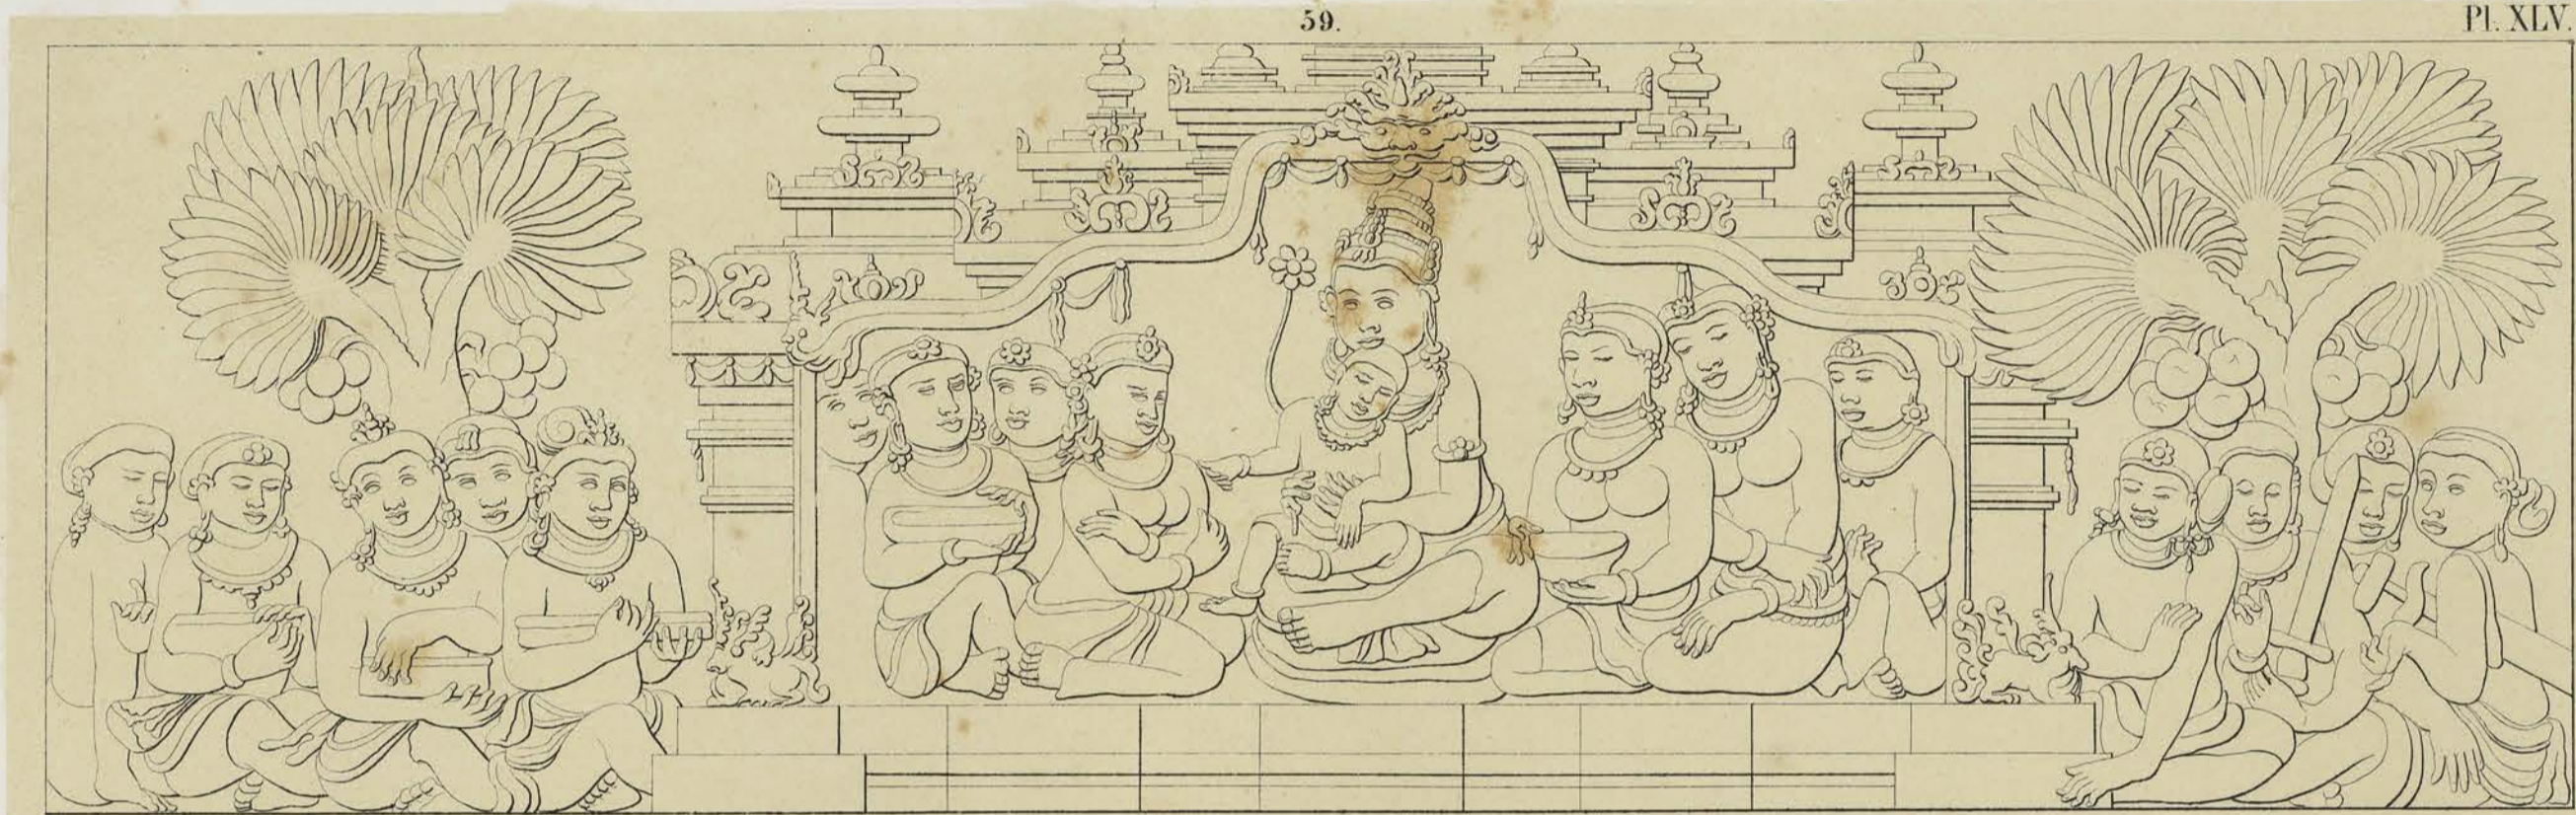 59.
Pl. XLV.